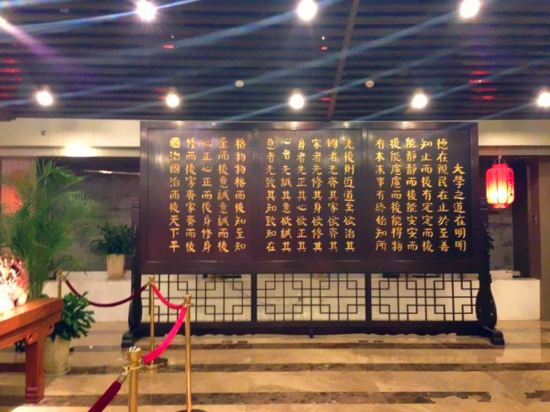 大學之道在明明
德在親民在止於至善
知止而後有定定而後
能靜靜而後能安安而
後能慮慮而後能得物
有本末事有終始知所
先後則近道矣欲治其
國者先齊其家欲齊其
家者先修其身欲修其
身者先正其心欲正其
心者先誠其意欲誠其
意者先致其知致知在
格物物格而後知至知
至而後意誠意誠而後
心正心正而後身修身
修而後家齊家齊而後
國治國治而後天下平